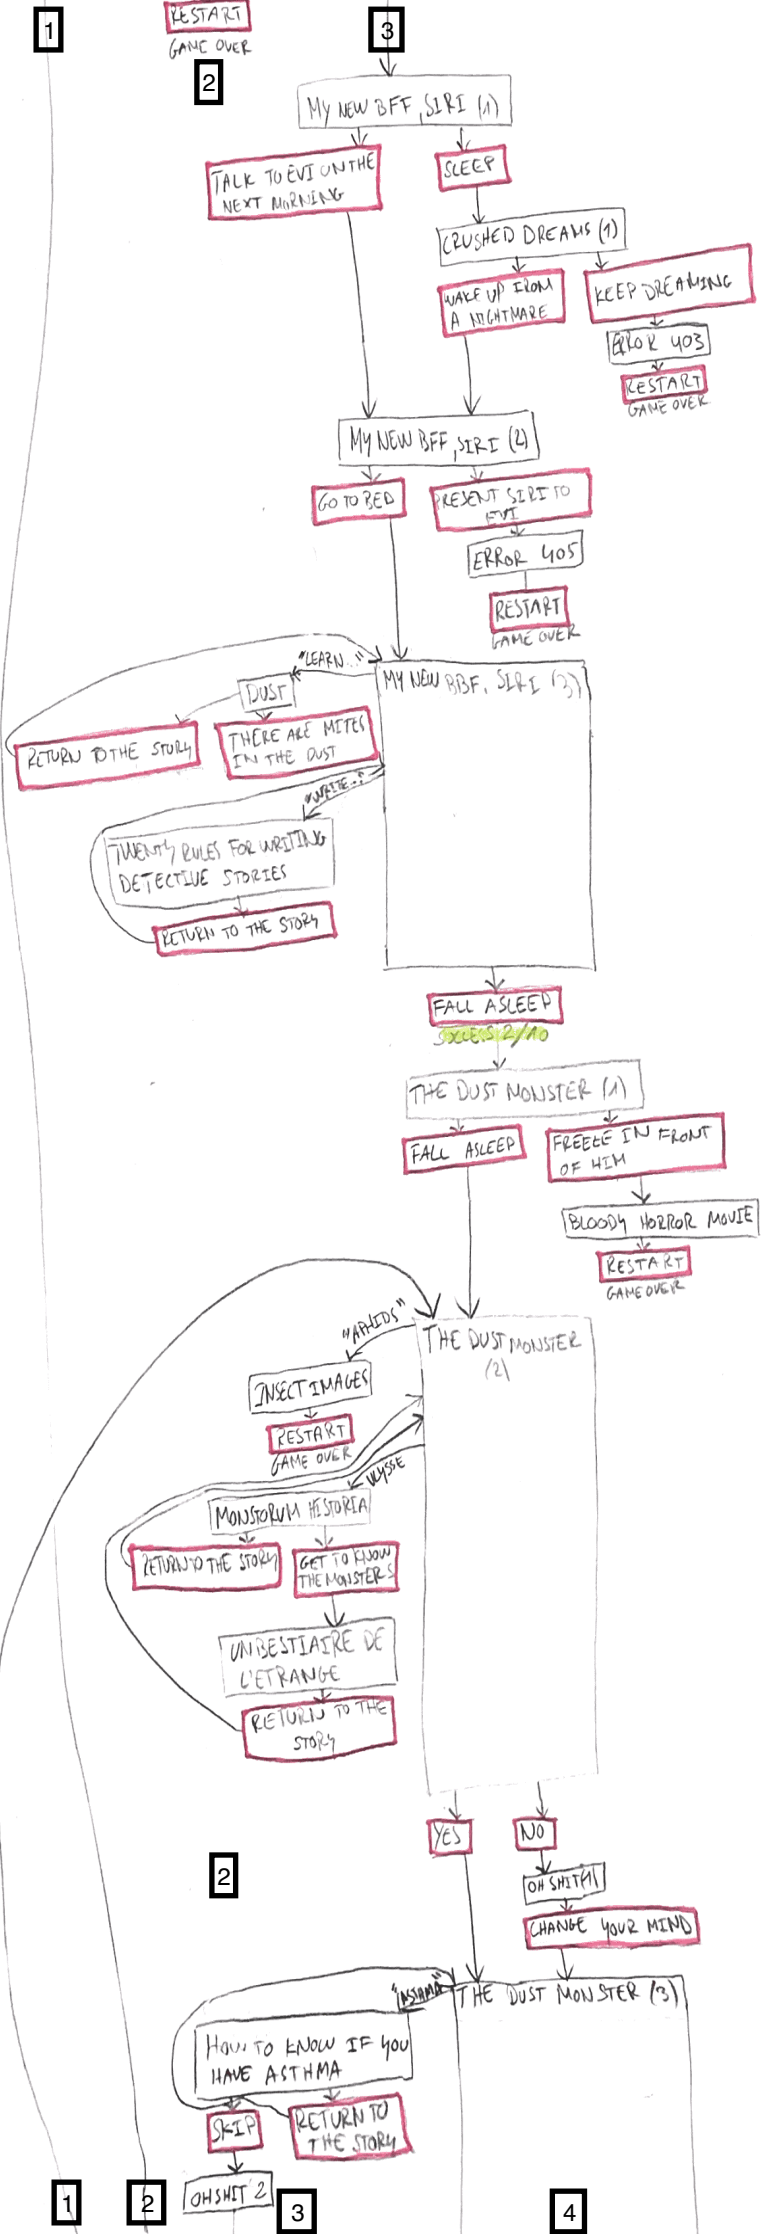 RESTART
1
3
GAME OVER
2
MY NEW BFF, SIRI (1)
TALK TO EVI ON THE
NEXT MORNING
SLEEP
CRUSHED DREAMS (1)
WAKE UP FROM
A NIGHTMARE
KEEP DREAMING
ERROR 403
RESTART
GAME OVER
MY NEW BFF, SIRI (2)
GO TO BED
PRESENT SIRI TO
EVI
ERROR 405
RESTART
GAME OVER
"LEARN..."
MY NEW BBF, SIRI (3)
DUST
RETURN TO THE STORY
THERE ARE MITES
IN THE DUST
"WRITE..."
TWENTY RULES FOR WRITING
DETECTIVE STORIES
RETURN TO THE STORY
FALL ASLEEP
SUCCESS 2/10
THE DUST MONSTER (1)
FALL ASLEEP
FREEZE IN FRONT
OF HIM
BLOODY HORROR MOVIE
RESTART
GAME OVER
"APHIDS"
THE DUST MONSTER
(2)
INSECT IMAGES
RESTART
GAME OVER
ULYSSE
MONSTORUM HISTORIA
RETURN TO THE STORY
GET TO KNOW
THE MONSTERS
UN BESTIAIRE DE
L'ETRANGE
RETURN TO THE
STORY
YES
NO
2
OH SHIT (1)
CHANGE YOUR MIND
"ASTHMA"
THE DUST MONSTER (3)
HOW TO KNOW IF YOU
HAVE ASTHMA
SKIP
RETURN TO
THE STORY
OH SHIT 2
1
2
3
4